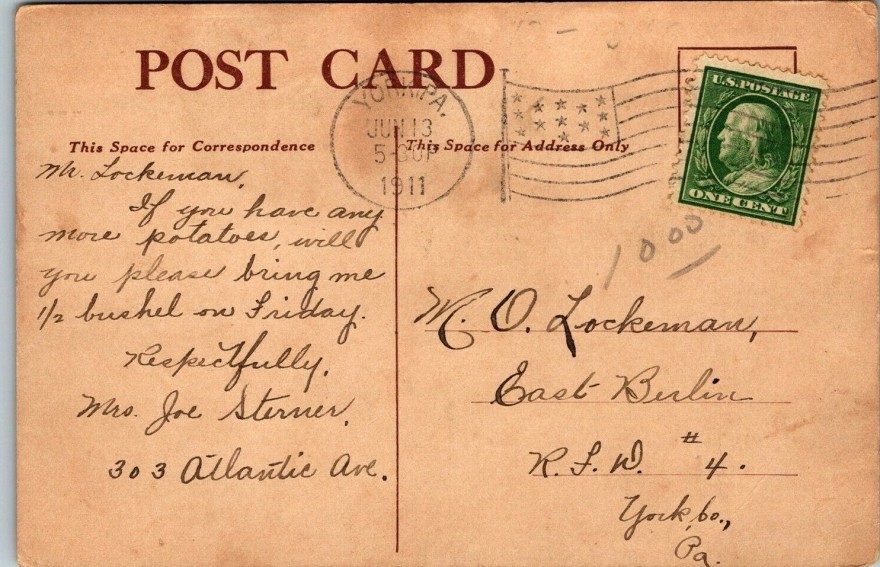 POST CARD
YORK, PA.
JUN 13
5-30P
1911
U.S. POSTAGE
ONE CENT
This Space for Correspondence
This Space for Address Only
Mr. Lockeman,
If you have any
more potatoes, will
you please bring me
1/2 bushel on Friday.
Respectfully,
Mrs. Joe Sterner,
303 Atlantic Ave.
1000
M. O. Lockeman,
East Berlin
R. F. D. # 4.
York Co.,
Pa.